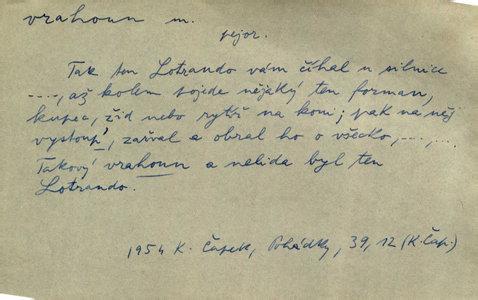 vrahoun m.
pejor.
Tak ten Lotrando vám číhal u silnice
...., až kolem pojede nějaký ten forman,
kupec, žid nebo rytíř na koni; pak na něj
vystoupí, zařval a obral ho o všecko, ..., ...
Takový vrahoun a nelida byl ten
Lotrando.
1954 K. Čapek, Pohádky, 39, 12 (K. Čap.)